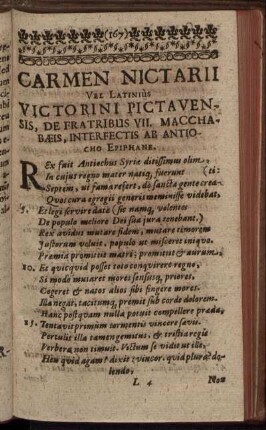 (167)
CARMEN NICTARII
VEL LATINIUS
VICTORINI PICTAVEN-
SIS, DE FRATRIBUS VII. MACCHA-
BÆIS, INTERFECTIS AB ANTIO-
CHO EPIPHANE.
REx fuit Antiochus Syriæ ditissimus olim,
In cujus regno mater natiq; fuerunt (ti:
Septem, ut fama refert, de sancta gente crea-
Quos cura egregii generis meminisse videbat,
5. Et legi servire datæ (sic namq, volentes
De populo meliore Dei sua jura tenebant.)
Rex avidus mutare fidem, mutare timorem
Justorum voluit, populo ut misceret iniquo.
Præmia promittit matri; promittit & aurum
10. Et quicquid posset tot conquirere regno,
Si modo mutaret mores sensusq, priores,
Cogeret & natos alios sibi fingere mores.
Illa negat, tacitumq, premit sub corde dolorem.
Hanc postquam nulla potuit compellere præda,
15. Tentavit primum tormentis vincere sævis.
Pertulit illa tamen gemitus, & tristia regis
Verbera non timuit. Victum se vidit ut ille,
Heu quid agam? dixit: vincor. quid plura? do-
lendo,
L 4 Non